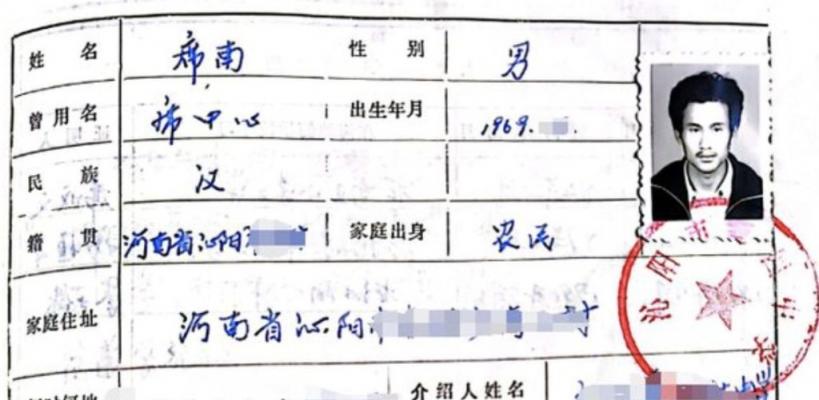 姓名 席南 性别 男
曾用名 席中心 出生年月 1969.
民族 汉
籍贯 河南省沁阳 家庭出身 农民
家庭住址 河南省沁阳市 村
介绍人姓名
沁阳